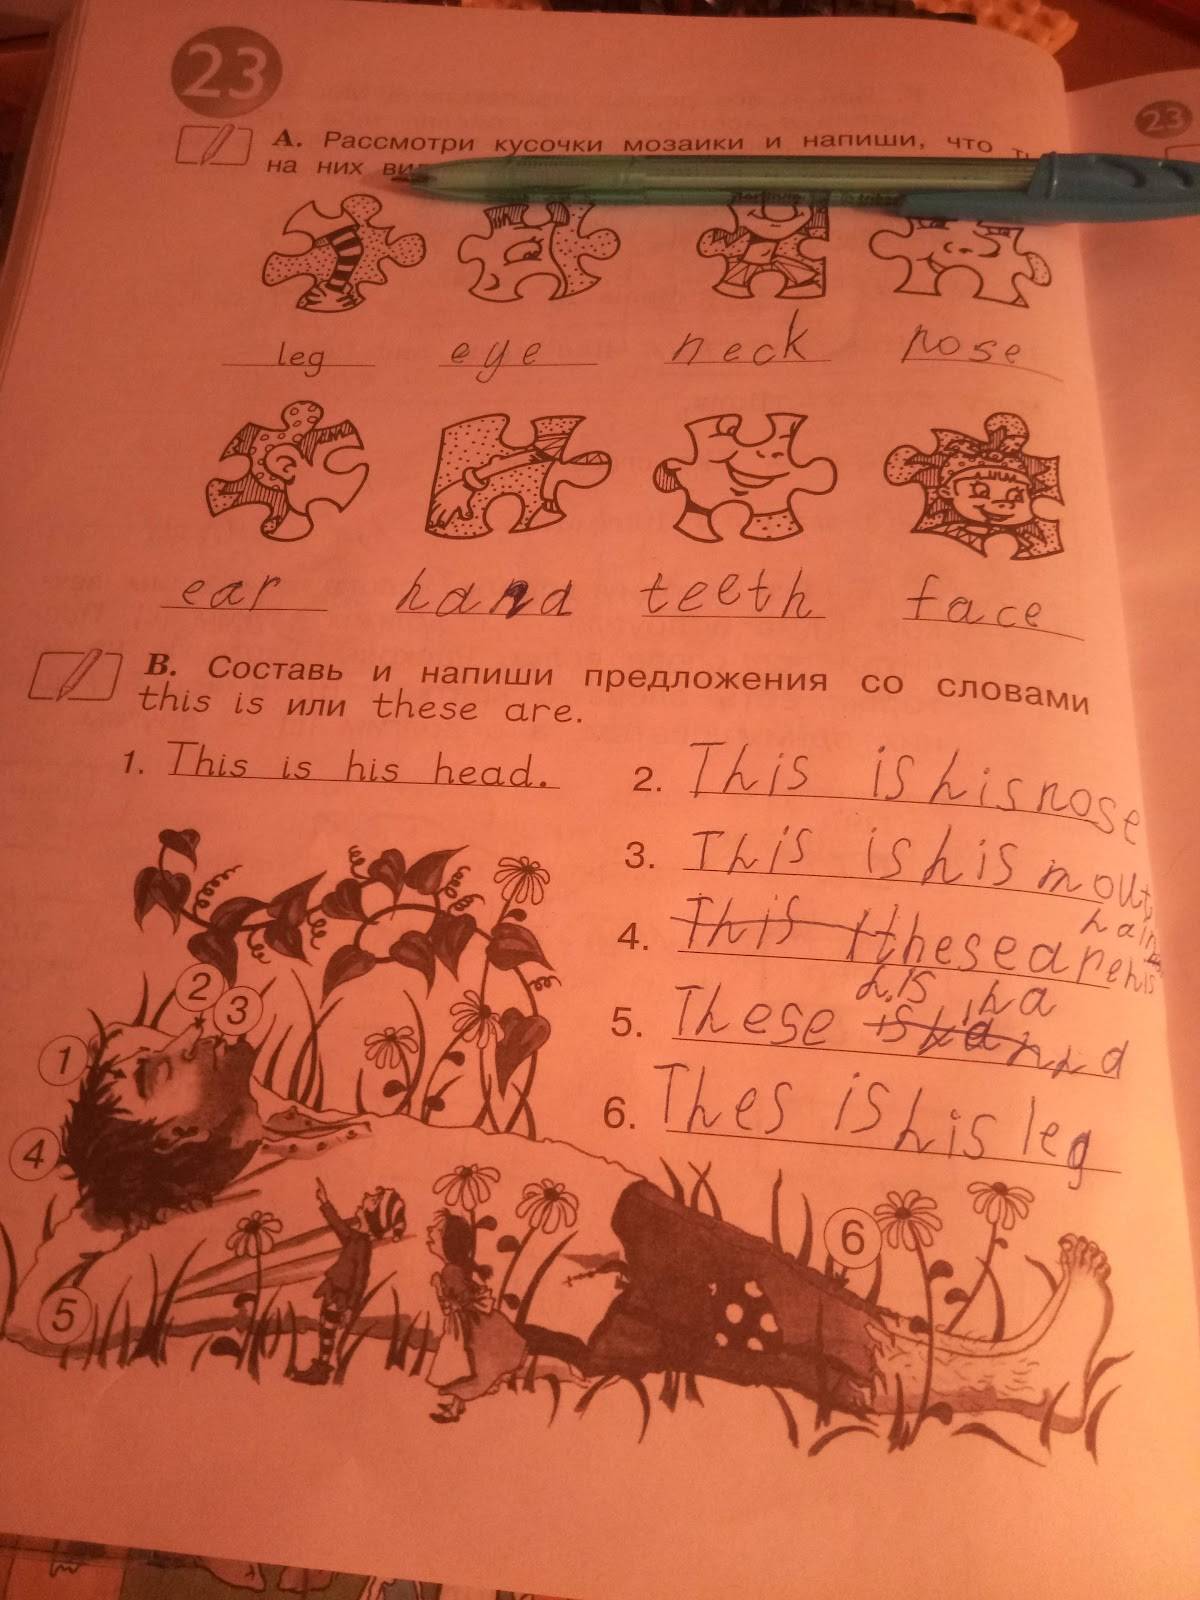 23
23
A. Рассмотри кусочки мозаики и напиши, что
на них
leg eye neck nose
ear hand teeth face
B. Составь и напиши предложения со словами
this is или these are.
1. This is his head.
2. This is his nose
3. This is his mout
4. This these are his
hair
5. These is
his ha
nd
6. Thes is his leg
2
3
1
4
6
5